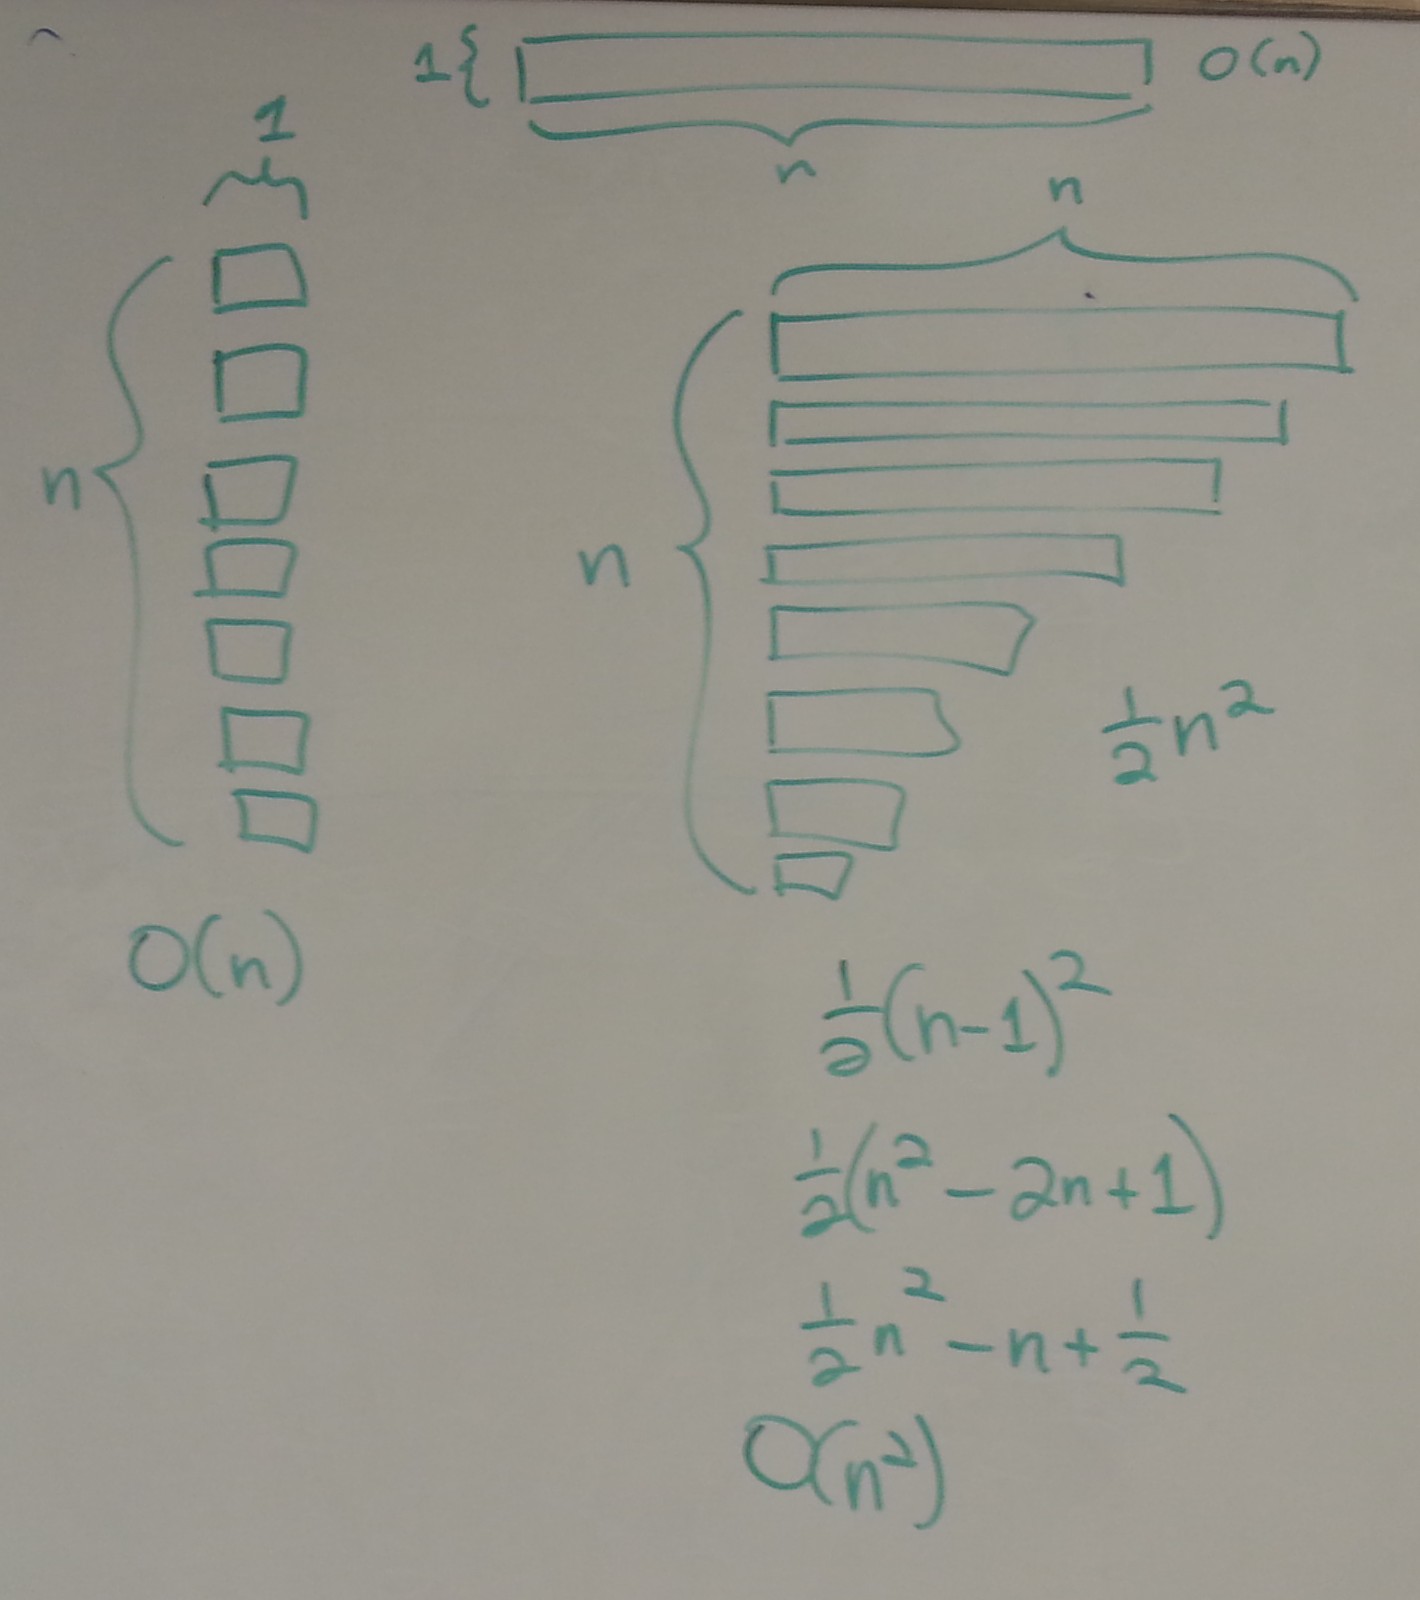 1{ O(n)
n
1
n
O(n)
n
n
½n²
½(n-1)²
½(n² - 2n + 1)
½n² - n + ½
O(n²)